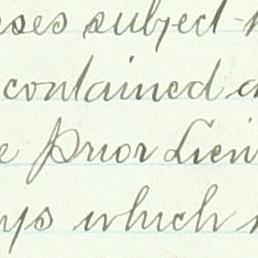 subject
contained
Prior Lien
which